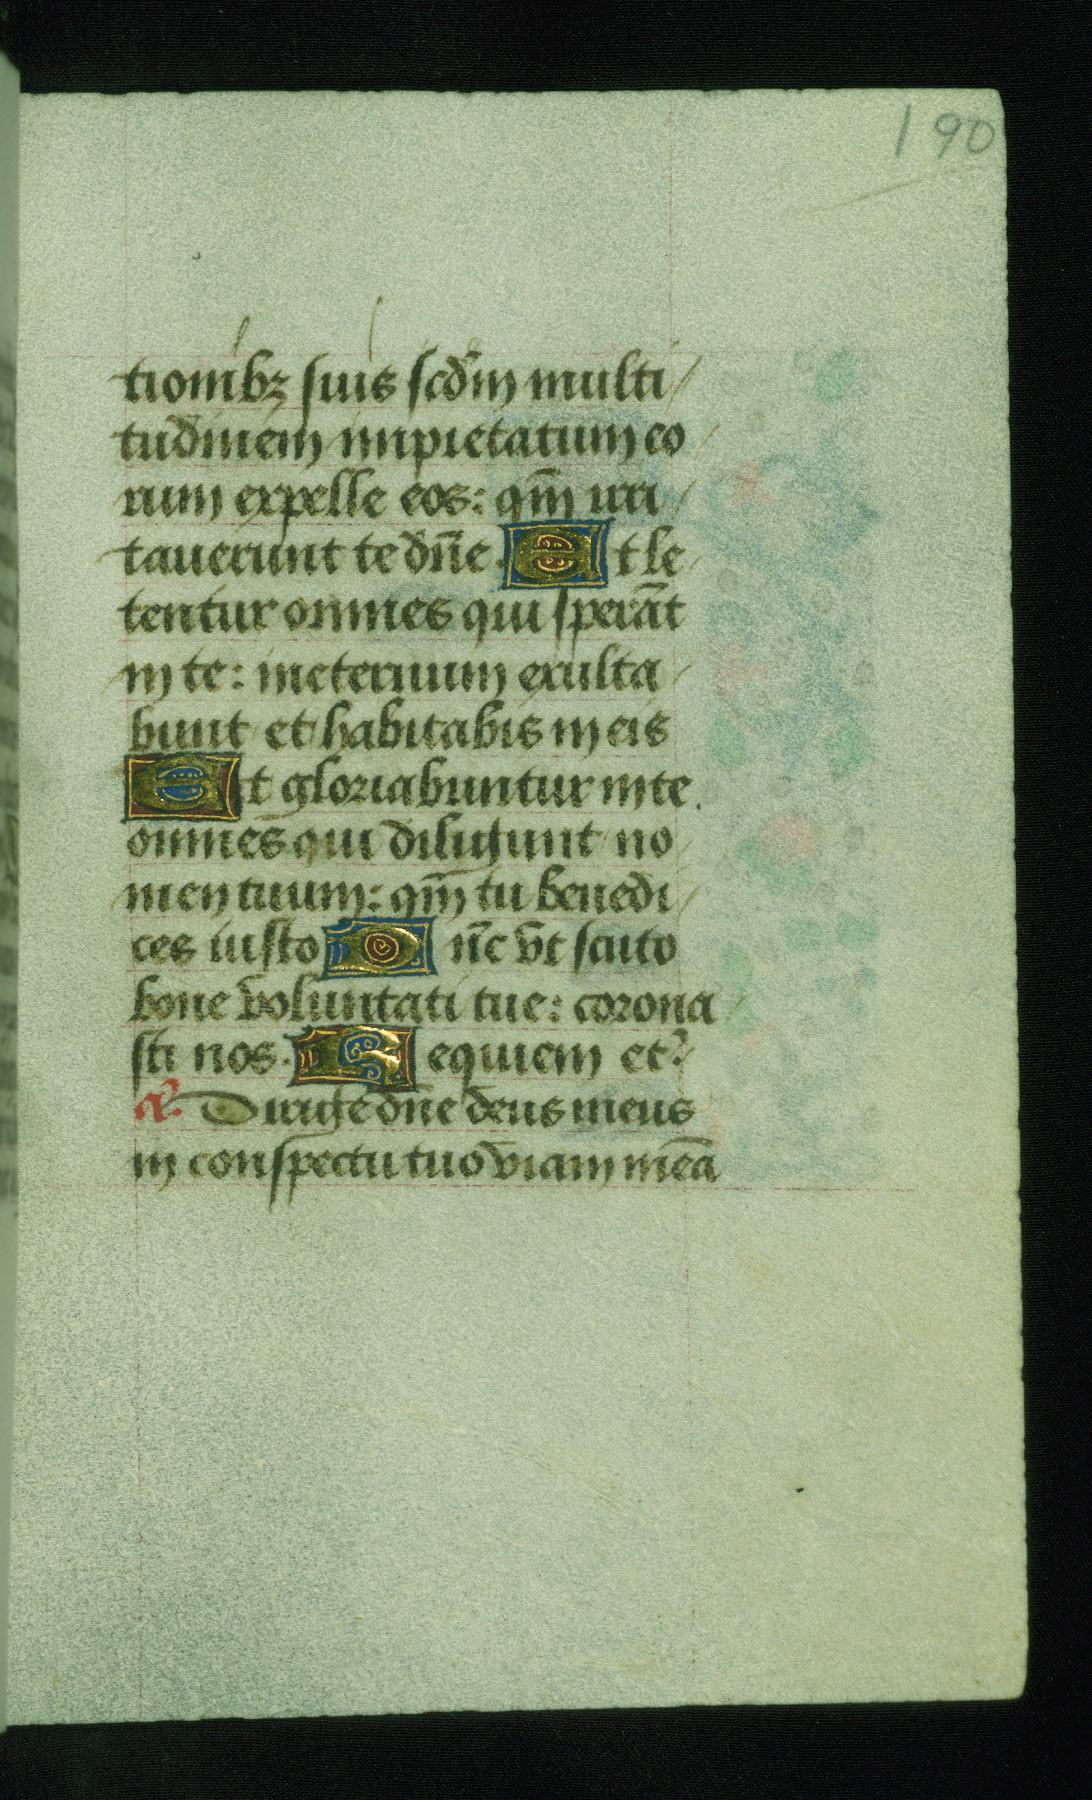 190
tionibꝫ suis scd̄m multi
tudinem impietatum eo
rum expelle eos: qm̄ irri
tauerunt te dn̄e. Et le
tentur omnes qui sperāt
in te: ineternum exulta
bunt et habitabis in eis
Et gloriabuntur in te.
omnes qui diligunt no
men tuum: qm̄ tu benedi
ces iusto Dn̄e vt scuto
bone voluntati tue: corona
sti nos. Requiem et
a. Dirige dn̄e deus meus
in conspectu tuo viam meā